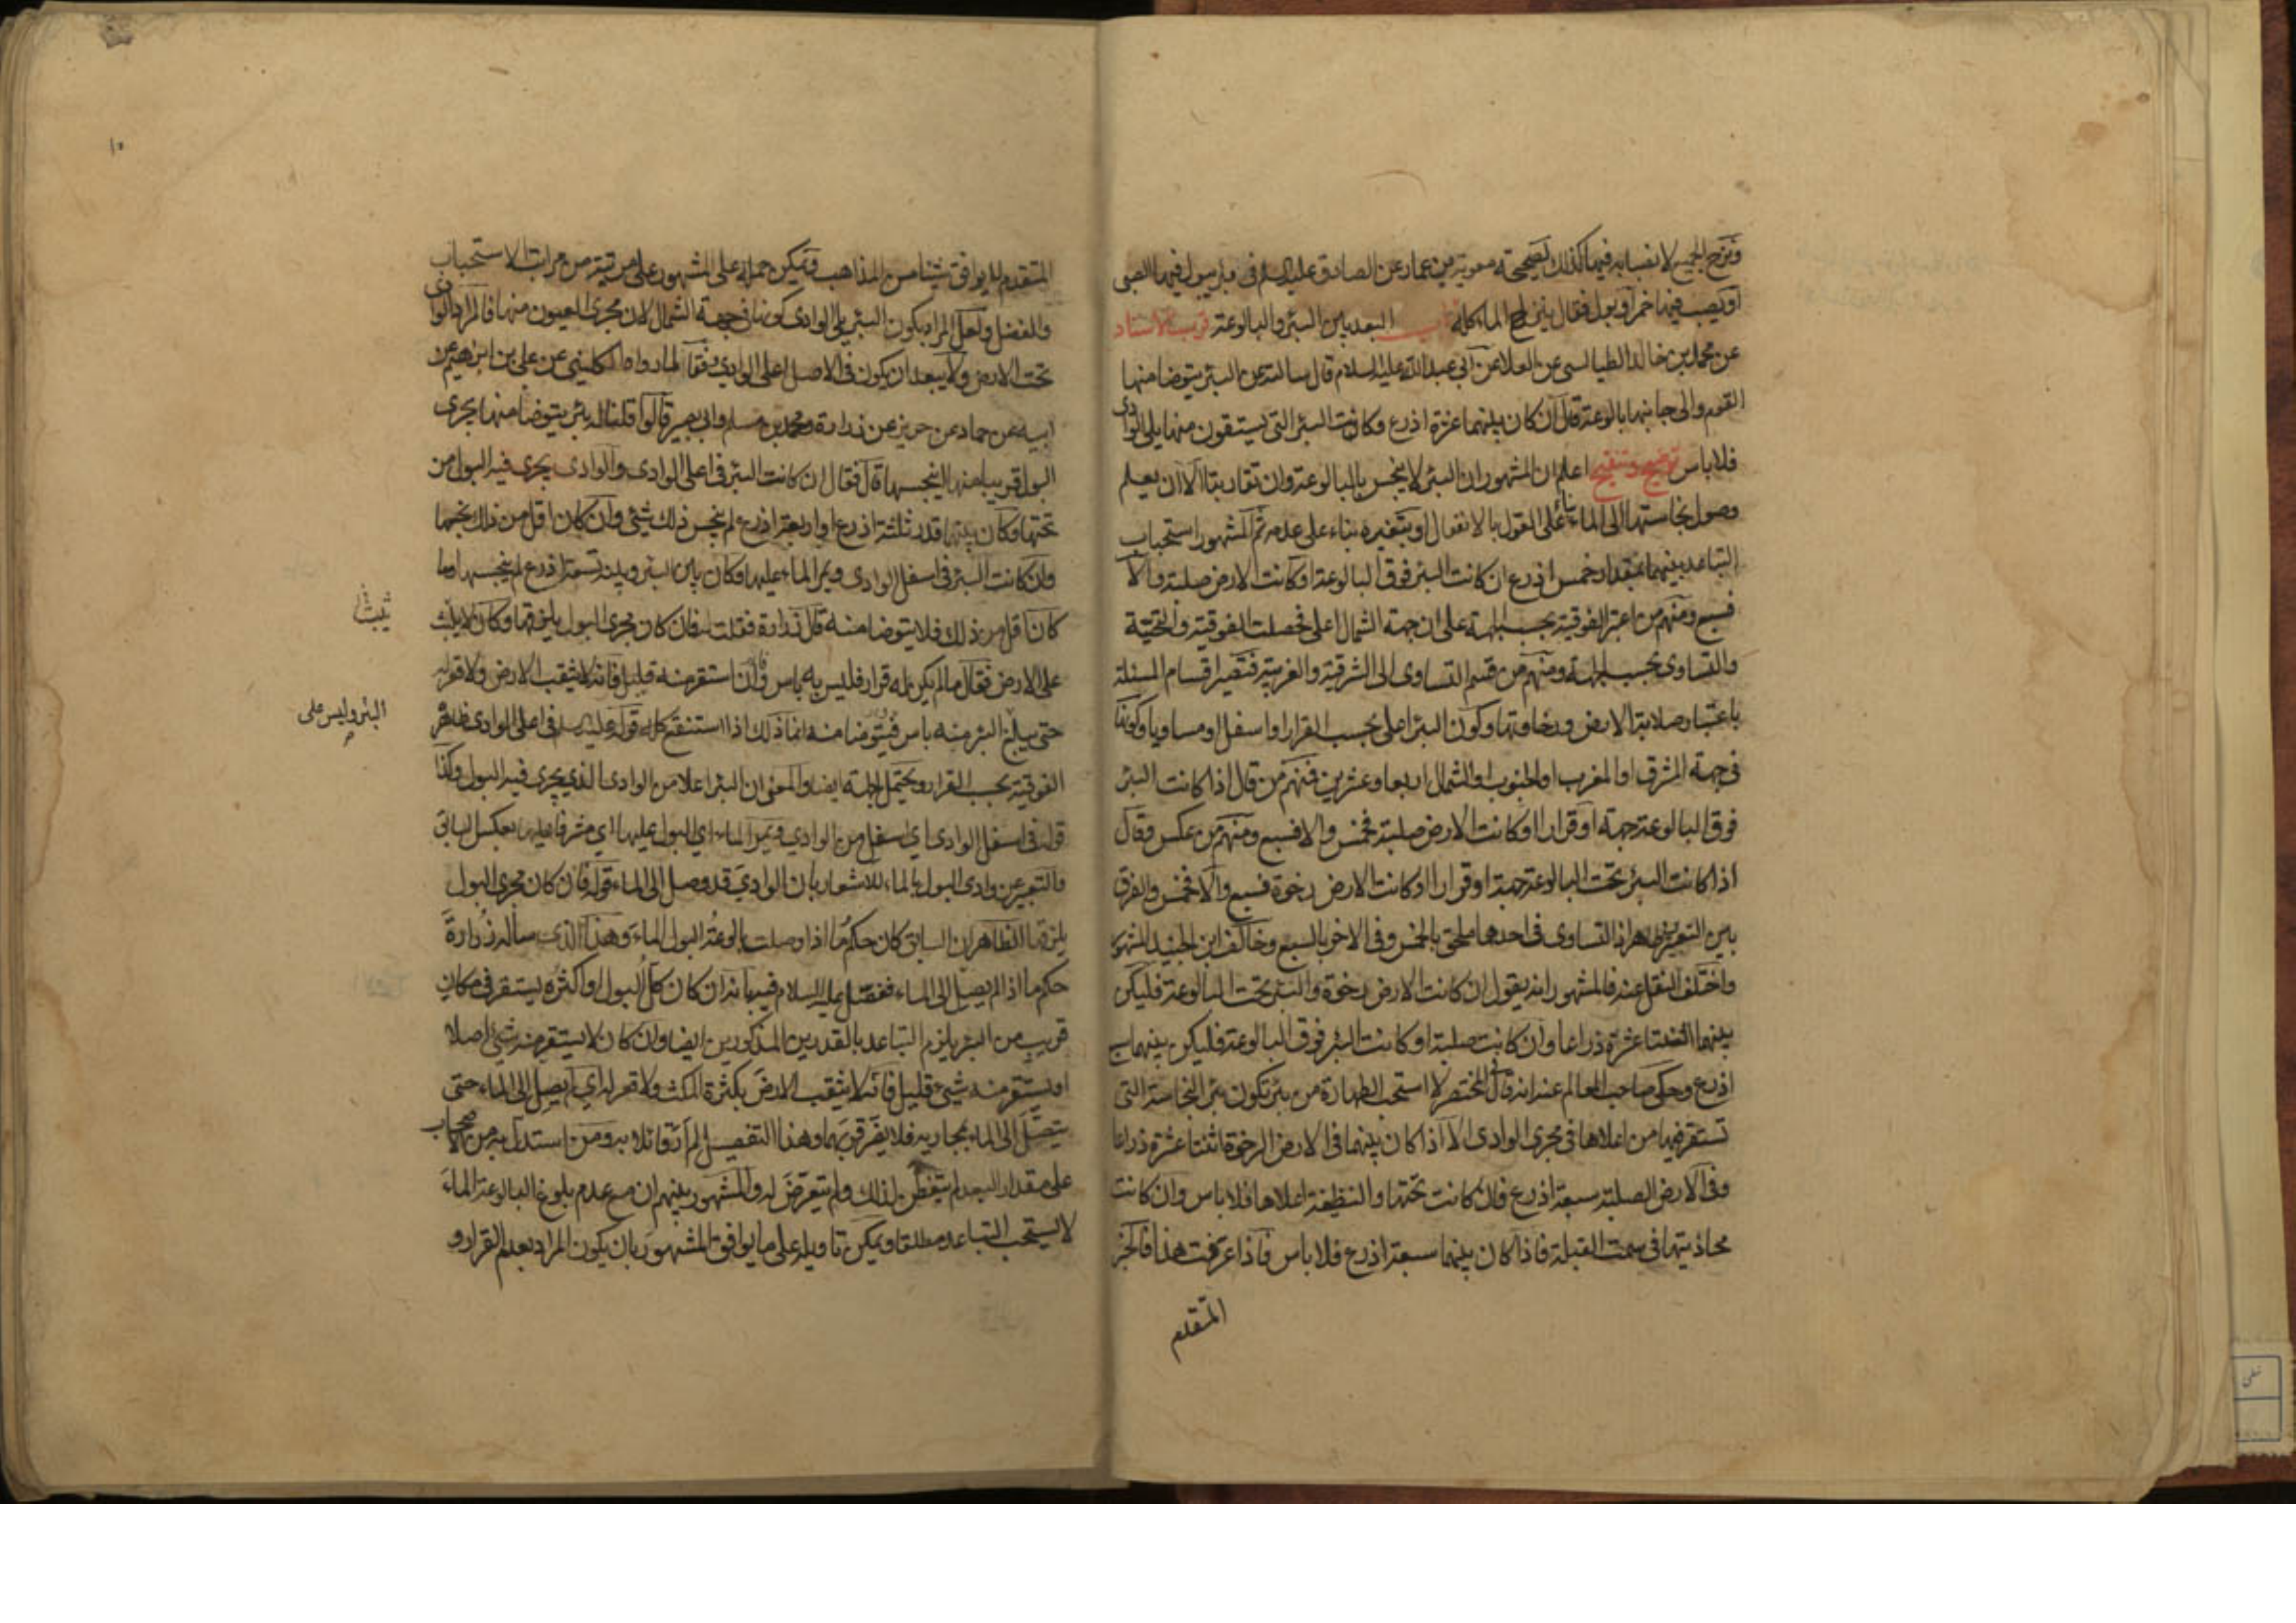 ونزح الجميع لانصبابه فيها كذلك لصحيحة معوية بن عمار عن الصادق عليه السلام في بئر يبول فيها الصبي
او يصب فيها خمر او بول فقال ينزح الماء كله باب البعد بين البئر والبالوعة قرب الاسناد
عن محمد بن خالد الطيالسي عن العلا عن ابي عبد الله عليه السلام قال سالته عن البئر يتوضا منها
القوم والى جانبها بالوعة قال ان كان بينهما عشرة اذرع وكانت البئر التي يستقون منها يلي الوادي
فلا باس توضيح وتنقيح اعلم ان المشهور ان البئر لا ينجس بالبالوعة وان تقاربتا الا ان يعلم
وصول نجاستها الى الماء بناء على القول بالانفعال او بتغيره بناء على عدمه ثم المشهور استحباب
التباعد بينهما بمقدار خمس اذرع ان كانت البئر فوق البالوعة او كانت الارض صلبة والا
فسبع ومنهم من اعتبر الفوقية بحسب الجهة على ان جهة الشمال اعلى فحصلت الفوقية والتحتية
والتساوي بحسب الجهة ومنهم من قسم التساوي الى الشرقية والغربية فتصير اقسام المسئلة
باعتبار صلابة الارض ورخاوتها وكون البئر اعلى بحسب القرار او اسفل او مساويا وكونها
في جهة المشرق او المغرب او الجنوب او الشمال اربعا وعشرين فمنهم من قال اذا كانت البئر
فوق البالوعة جهة او قرارا او كانت الارض صلبة فخمس والا فسبع ومنهم من عكس وقال
اذا كانت البئر تحت البالوعة جهة او قرارا او كانت الارض رخوة فسبع والا فخمس والفرق
بين التعبيرين ظاهر اذ التساوي في احدهما ملحق بالخمس وفي الاخر بالسبع وخالف ابن الجنيد المشهور
واختلف النقل عنه فالمشهور انه يقول ان كانت الارض رخوة والبئر تحت البالوعة فليكن
بينهما اثنتا عشرة ذراعا وان كانت صلبة او كانت البئر فوق البالوعة فليكن بينهما سبع
اذرع وحكى صاحب المعالم عنه انه قال في المختصر لا استحب الطهارة من بئر تكون بئر النجاسة التي
تستقر فيها من اعلاها في مجرى الوادي الا اذا كان بينهما في الارض الرخوة اثنتا عشرة ذراعا
وفي الارض الصلبة سبعة اذرع فان كانت تحتها والنظيفة اعلاها فلا باس وان كانت
محاذيتها في سمت القبلة فاذا كان بينهما سبعة اذرع فلا باس فاذا عرفت هذا فالخبر
المتقدم
١٠
المتقدم لا يوافق شيئا من المذاهب ويمكن حمله على المشهور على مرتبة من مراتب الاستحباب
والفضل ولعل المراد بكون البئر يلي الوادي كونها في جهة الشمال لان مجرى العيون منها فالمراد الوادي
تحت الارض ولا يبعد ان يكون في الاصل اعلى الوادي وفقا لما رواه الكليني عن علي بن ابرهيم عن
ابيه عن حماد عن حريز عن زرارة ومحمد بن مسلم وابي بصير قالوا قلنا له بئر يتوضا منها يجري
البول قريبا منها اينجسها قال فقال ان كانت البئر في اعلى الوادي والوادي يجري فيه البول من
تحتها وكان بينهما قدر ثلثة اذرع او اربعة اذرع لم ينجس ذلك شئ وان كان اقل من ذلك نجسها
وان كانت البئر في اسفل الوادي ويمر الماء عليها وكان بين البئر وبينه تسعة اذرع لم ينجسها وما
كان اقل من ذلك فلا يتوضا منه قال زرارة فقلت له فان كان مجرى البول يلزقها وكان لا يلبث
يثبت
على الارض فقال ما لم يكن له قرار فليس به باس وان استقر منه قليل فانه لا يثقب الارض ولا قعر له
حتى يبلغ البئر منه باس فيتوضا منه انما ذلك اذا استنقع كله قوله عليه السلام في اعلى الوادي ظاهره
البئر وليس على
الفوقية بحسب القرار ويحتمل الجهة ايضا والمعنى ان البئر اعلا من الوادي الذي يجري فيه البول وكذا
قوله في اسفل الوادي اي اسفل من الوادي ويمر الماء اي البول عليها اي مشرفا عليها بعكس السابق
والتعبير عن وادي البول بالماء للاشعار بان الوادي قد وصل الى الماء قوله فان كان مجرى البول
يلزقها الظاهر ان السابق كان حكم ما اذا وصلت بالوعة البول الماء وهذا الذي ساله زرارة
حكم ما اذا لم يصل الى الماء ففصل عليه السلام فيه بانه ان كان كل البول او اكثره يستقر في مكان
قريب من البئر يلزم التباعد بالقدرين المذكورين ايضا وان كان لا يستقر منه شئ اصلا
او يستقر منه شئ قليل فانه لا يثقب الارض بكثرة المكث ولا قعر له اي لم يصل الى الماء حتى
يتصل الى الماء بمجاريه فلا يضر قربهما وهذا التفصيل لم ار قائلا به ومن استدل به من الاصحاب
على مقدار البعد لم يتفطن لذلك ولم يتعرض له والمشهور بينهم ان مع عدم بلوغ البالوعة الماء
لا يستحب التباعد مطلقا ويمكن تاويله على ما يوافق المشهور بان يكون المراد بعدم القرار و